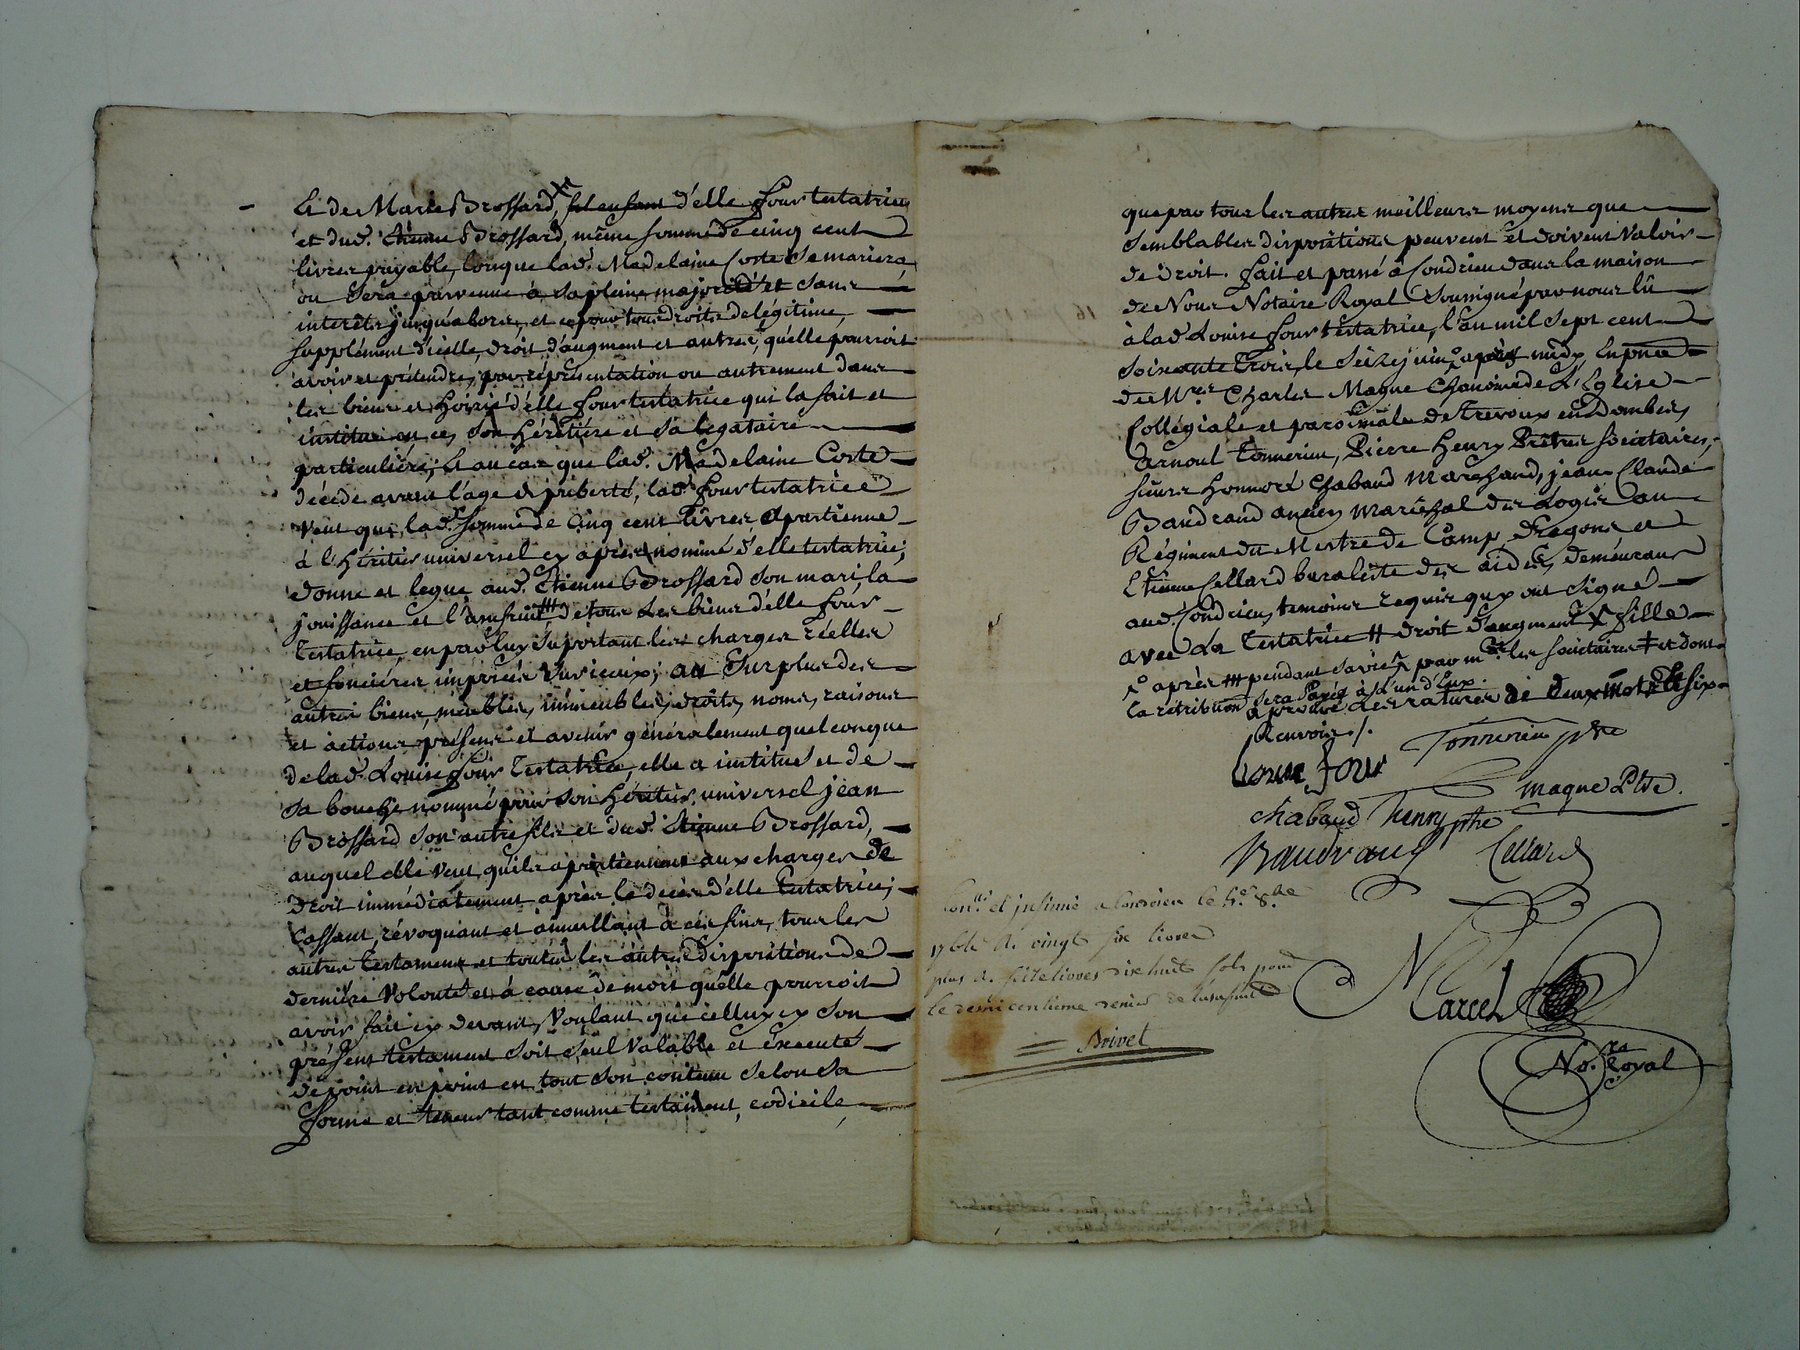 Et de Marie Brossard, fil enfant d'elle four testatrice
et dud. Etienne Brossard, même somme de cinq cent
livres payable, lorsque lad. Madelaine Coste se mariera
ou sera parvenue à sa pleine majorité et sans
interêts jusqu'alors, et ce pour tous droits de légitime,
supplément d'icelle, droit d'augment et autres, qu'elle pourroit
avoir et prétendre, par représentation ou autrement dans
les biens et Hoirie d'elle four testatrice qui la fait et
institue en ce, son héritiére et sa légataire
particuliére; et au cas que lad. Madelaine Coste
décéde avant l'age de puberté, lad. four testatrice
veut que lad. somme de cinq cent livres apartienne
à l'héritier universel cy après nommé d'elle testatrice;
donne et legue aud. Etienne Brossard son mari, la
jouissance et l'usufruit, # de tous les biens d'elle four
testatrice, en par luy suportant les charges réelles
et fonciéres imposées sur iceux; au surplus des
autres biens, meubles, immeubles, droits, noms, raisons
et actions présens et avenir généralement quelconque
de lad. Louise four testatrice, elle a institué et de
sa bouche nommé pour son héritier universel jean
Brossard son autre fils et dud. Etienne Brossard,
auquel elle veut qu'ils apartiennent aux charges de
droit immédiatement après le decès d'elle testatrice;
Cassant, révoquant et annullant à ces fins, tous les
autres testamens et toutes les autres dispositions de
derniére volonté et à cause de mort qu'elle pourroit
avoir fait cy devant, voulant que celluy cy son
présent testament soit seul valable et éxecuté
de point en point en tout son contenu selon sa
forme et teneur tant comme testament, codicile,
que par tous les autres meilleurs moyens que
semblables dispositions peuvent et doivent valoir
de droit. fait et passé à Condrieu dans la maison
de Nous Notaire Royal soussigné par nous lû
à lad. Louise four testatrice, l'an mil sept cent
soixante trois, le seize juin après midy, En présce
de Mres Charles Magne Chanoine de L'Eglise
Collégiale et paroissiale de Trevoux en Dombes,
Arnoul Tonnerieu, Pierre Henry Prêtres Sociétaires,
sieurs Honnoré Chabaud Marchand, jean Claude
Baudrand ancien Maréchal des Logis au
Régiment du Mestre de Camp Dragons et
Etienne Cellard buraliste des aides, demeurans
aud. Condrieu, temoins requis qui ont signé
avec la Testatrice # droit d'augment X fille
après # pendant sa vie par mrs les sociétaires † et dont
la rétribution sera payée à l'un d'Eux.
aprouvé les ratures de deux mots et six
Renvois /.
Louise four Tonnerieu ptre
magne Ptre.
chabaud henry ptre
Baudrand Cellard
Conllé et jnsinué a Condrieu le
8bre
de vingt six livres
plus de sept livres dix huit sols pour
le demi centieme denier de lusufruit
Brivet
Marcel
No.re Royal